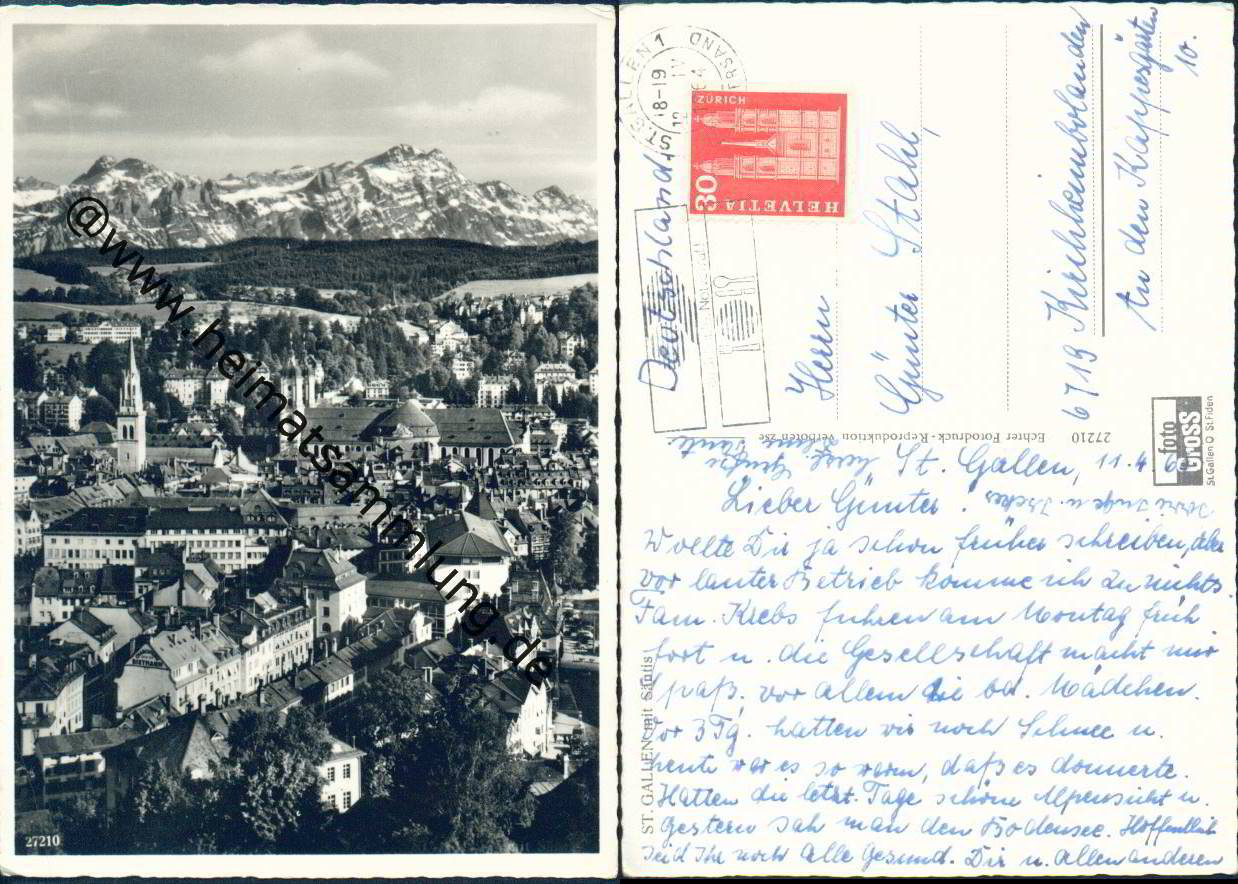 27210
DIETMANN
@www.heimatsammlung.de
ST. GALLEN 1
18-19
12. IV
VERSAND
ZÜRICH
30
HELVETIA
Deutschland
Herrn
Günter Stahl,
6719 Kirchheimbolanden
In den Kappesgärten
10.
27210 Echter Fotodruck - Reproduktion verboten
foto GROSS
St. Gallen O St. Fiden
ST. GALLEN mit Säntis
St. Gallen, 11.4.6
Lieber Günter!
Wollte Dir ja schon früher schreiben, aber
vor lauter Betrieb komme ich zu nichts.
Fam. Krebs fuhren am Montag früh
fort u. die Gesellschaft macht mir
Spaß, vor allem die bd. Mädchen.
Vor 3 Tg. hatten wir noch Schnee u.
heute war es so warm, daß es donnerte.
Hatten die letzt. Tage schöne Alpensicht u.
gestern sah man den Bodensee. Hoffentlich
seid Ihr noch alle gesund. Dir u. allen anderen
herzl. Grüße
Tante